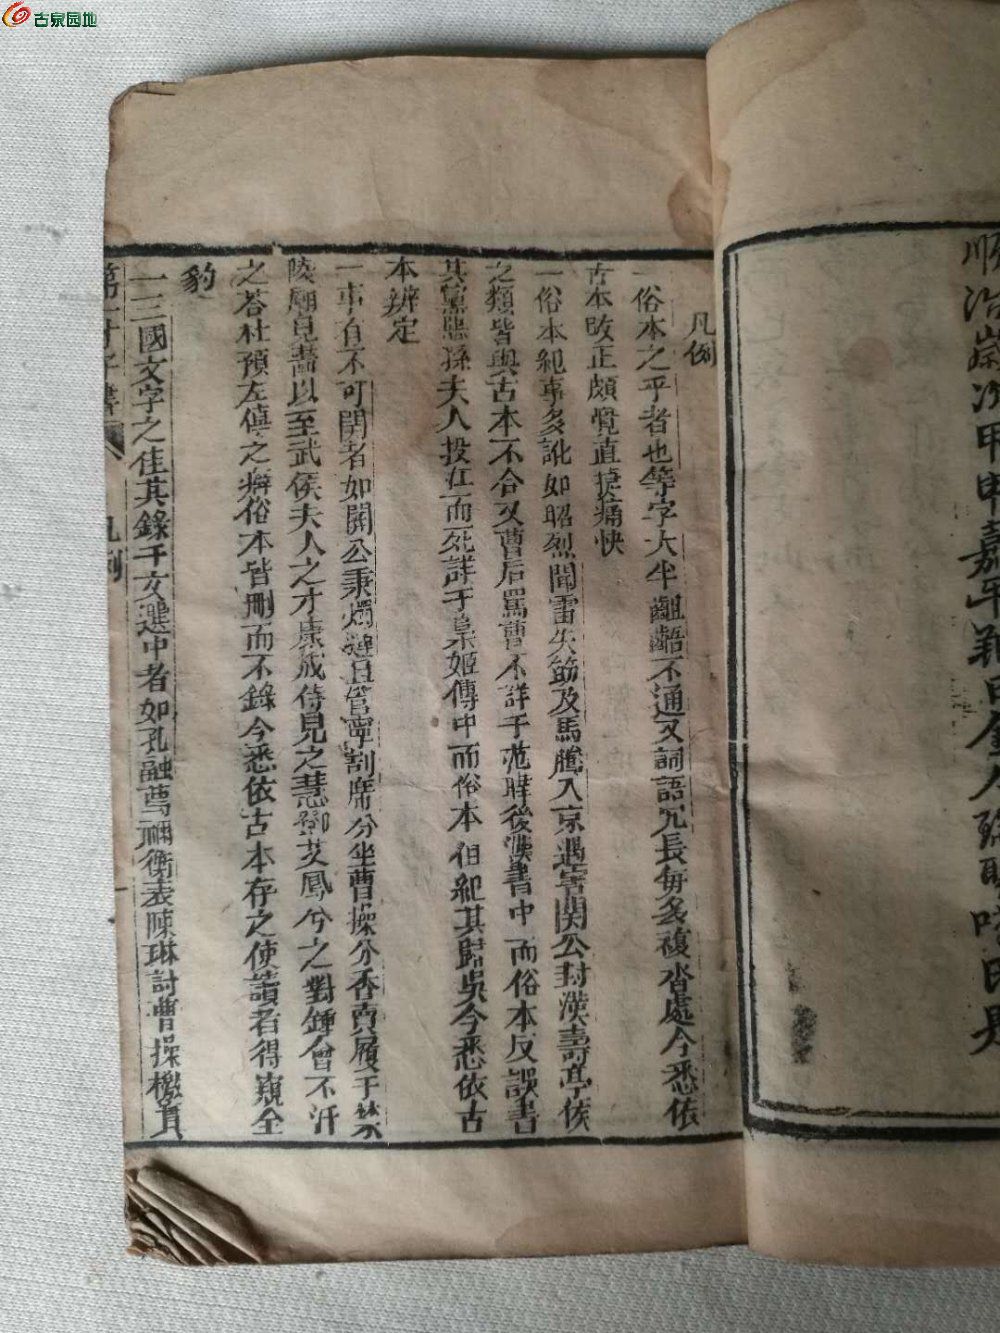 古泉园地
順治歲次甲申嘉平朔日金人瑞聖嘆氏
凡例
一俗本之乎者也等字大半齟齬不通又詞語冗長每多複沓處今悉依
古本改正頗覺直捷痛快
一俗本紀事多訛如昭烈聞雷失筯及馬騰入京遇害關公封漢壽亭侯
之類皆與古本不合又曹后罵曹丕詳于范曄後漢書中而俗本反誤書
其黨惡孫夫人投江而死詳于梟姬傳中而俗本但紀其歸吳今悉依古
本辨定
一事有不可闕者如關公秉燭達旦管寧割席分坐曹操分香賣履于禁
陵廟見畫以至武侯夫人之才康成侍兒之慧鄧艾鳳兮之對鍾會不汗
之荅杜預左傳之癖俗本皆刪而不錄今悉依古本存之使讀者得窺全
豹
一三國文字之佳其錄于文選中者如孔融薦禰衡表陳琳討曹操檄實
第一才子書 凡例